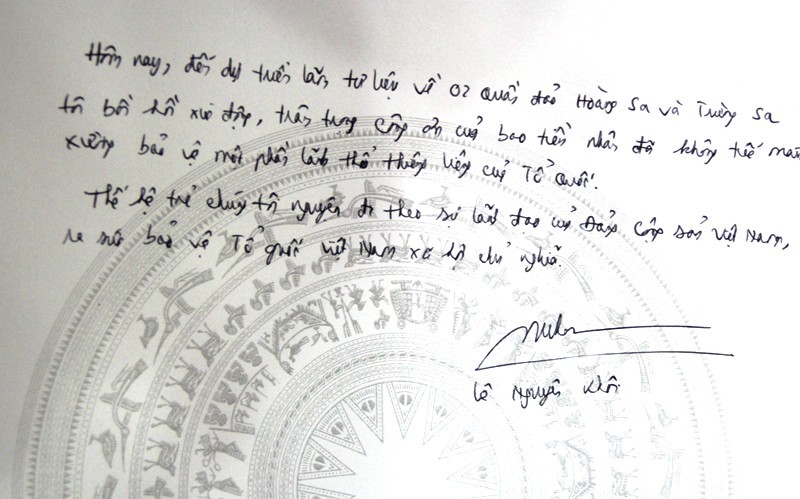 Hôm nay, đến dự triển lãm tư liệu về 02 quần đảo Hoàng Sa và Trường Sa
tôi bồi hồi xúc động, trân trọng công ơn của bao tiền nhân đã không tiếc máu
xương bảo vệ một phần lãnh thổ thiêng liêng của Tổ Quốc.
Thế hệ trẻ chúng tôi nguyện đi theo sự lãnh đạo của Đảng Cộng sản Việt Nam,
ra sức bảo vệ Tổ quốc Việt Nam xã hội chủ nghĩa.
Lê Nguyên Khôi